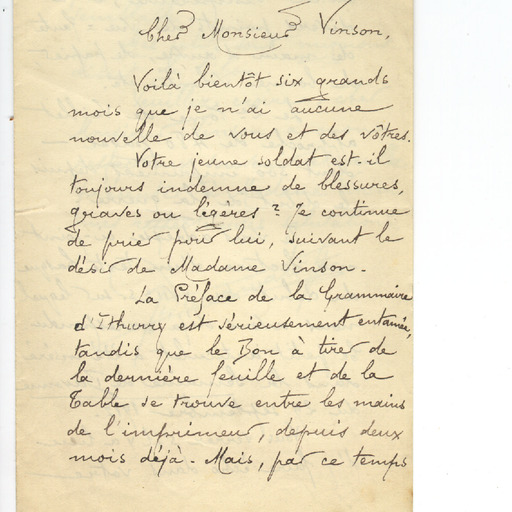 Cher Monsieur Vinson,
Voilà bientôt six grands
mois que je n'ai aucune
nouvelle de vous et des vôtres.
Votre jeune soldat est-il
toujours indemne de blessures,
graves ou légères ? Je continue
de prier pour lui, suivant le
désir de Madame Vinson.
La Préface de la Grammaire
d'Ithurry est sérieusement entamée,
tandis que le Bon à tirer de
la dernière feuille et de la
Table se trouve entre les mains
de l'imprimeur, depuis deux
mois déjà. Mais, par ce temps